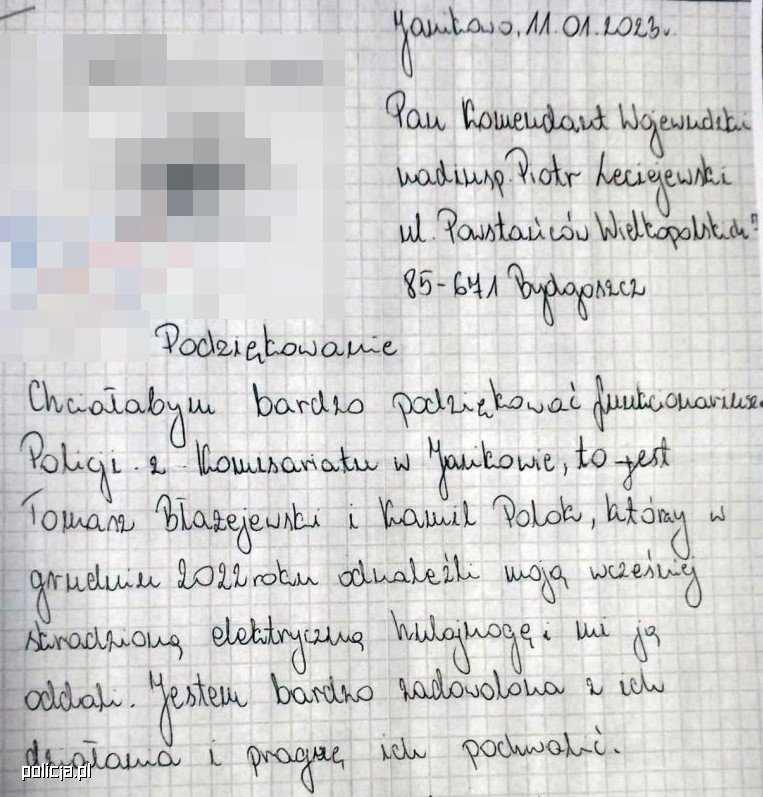 Janikowo, 11.01.2023r.
Pan Komendant Wojewódzki
nadinsp. Piotr Leciejewski
ul. Powstańców Wielkopolskich 7
85-671 Bydgoszcz
Podziękowanie
Chciałabym bardzo podziękować funkcjonariuszo
Policji z Komisariatu w Janikowie, to jest
Tomasz Błażejewski i Kamil Polok, którzy w
grudniu 2022 roku odnaleźli moją wcześniej
skradzioną elektryczną hulajnogę i mi ją
oddali. Jestem bardzo zadowolona z ich
działania i pragnę ich pochwalić.
policja.pl